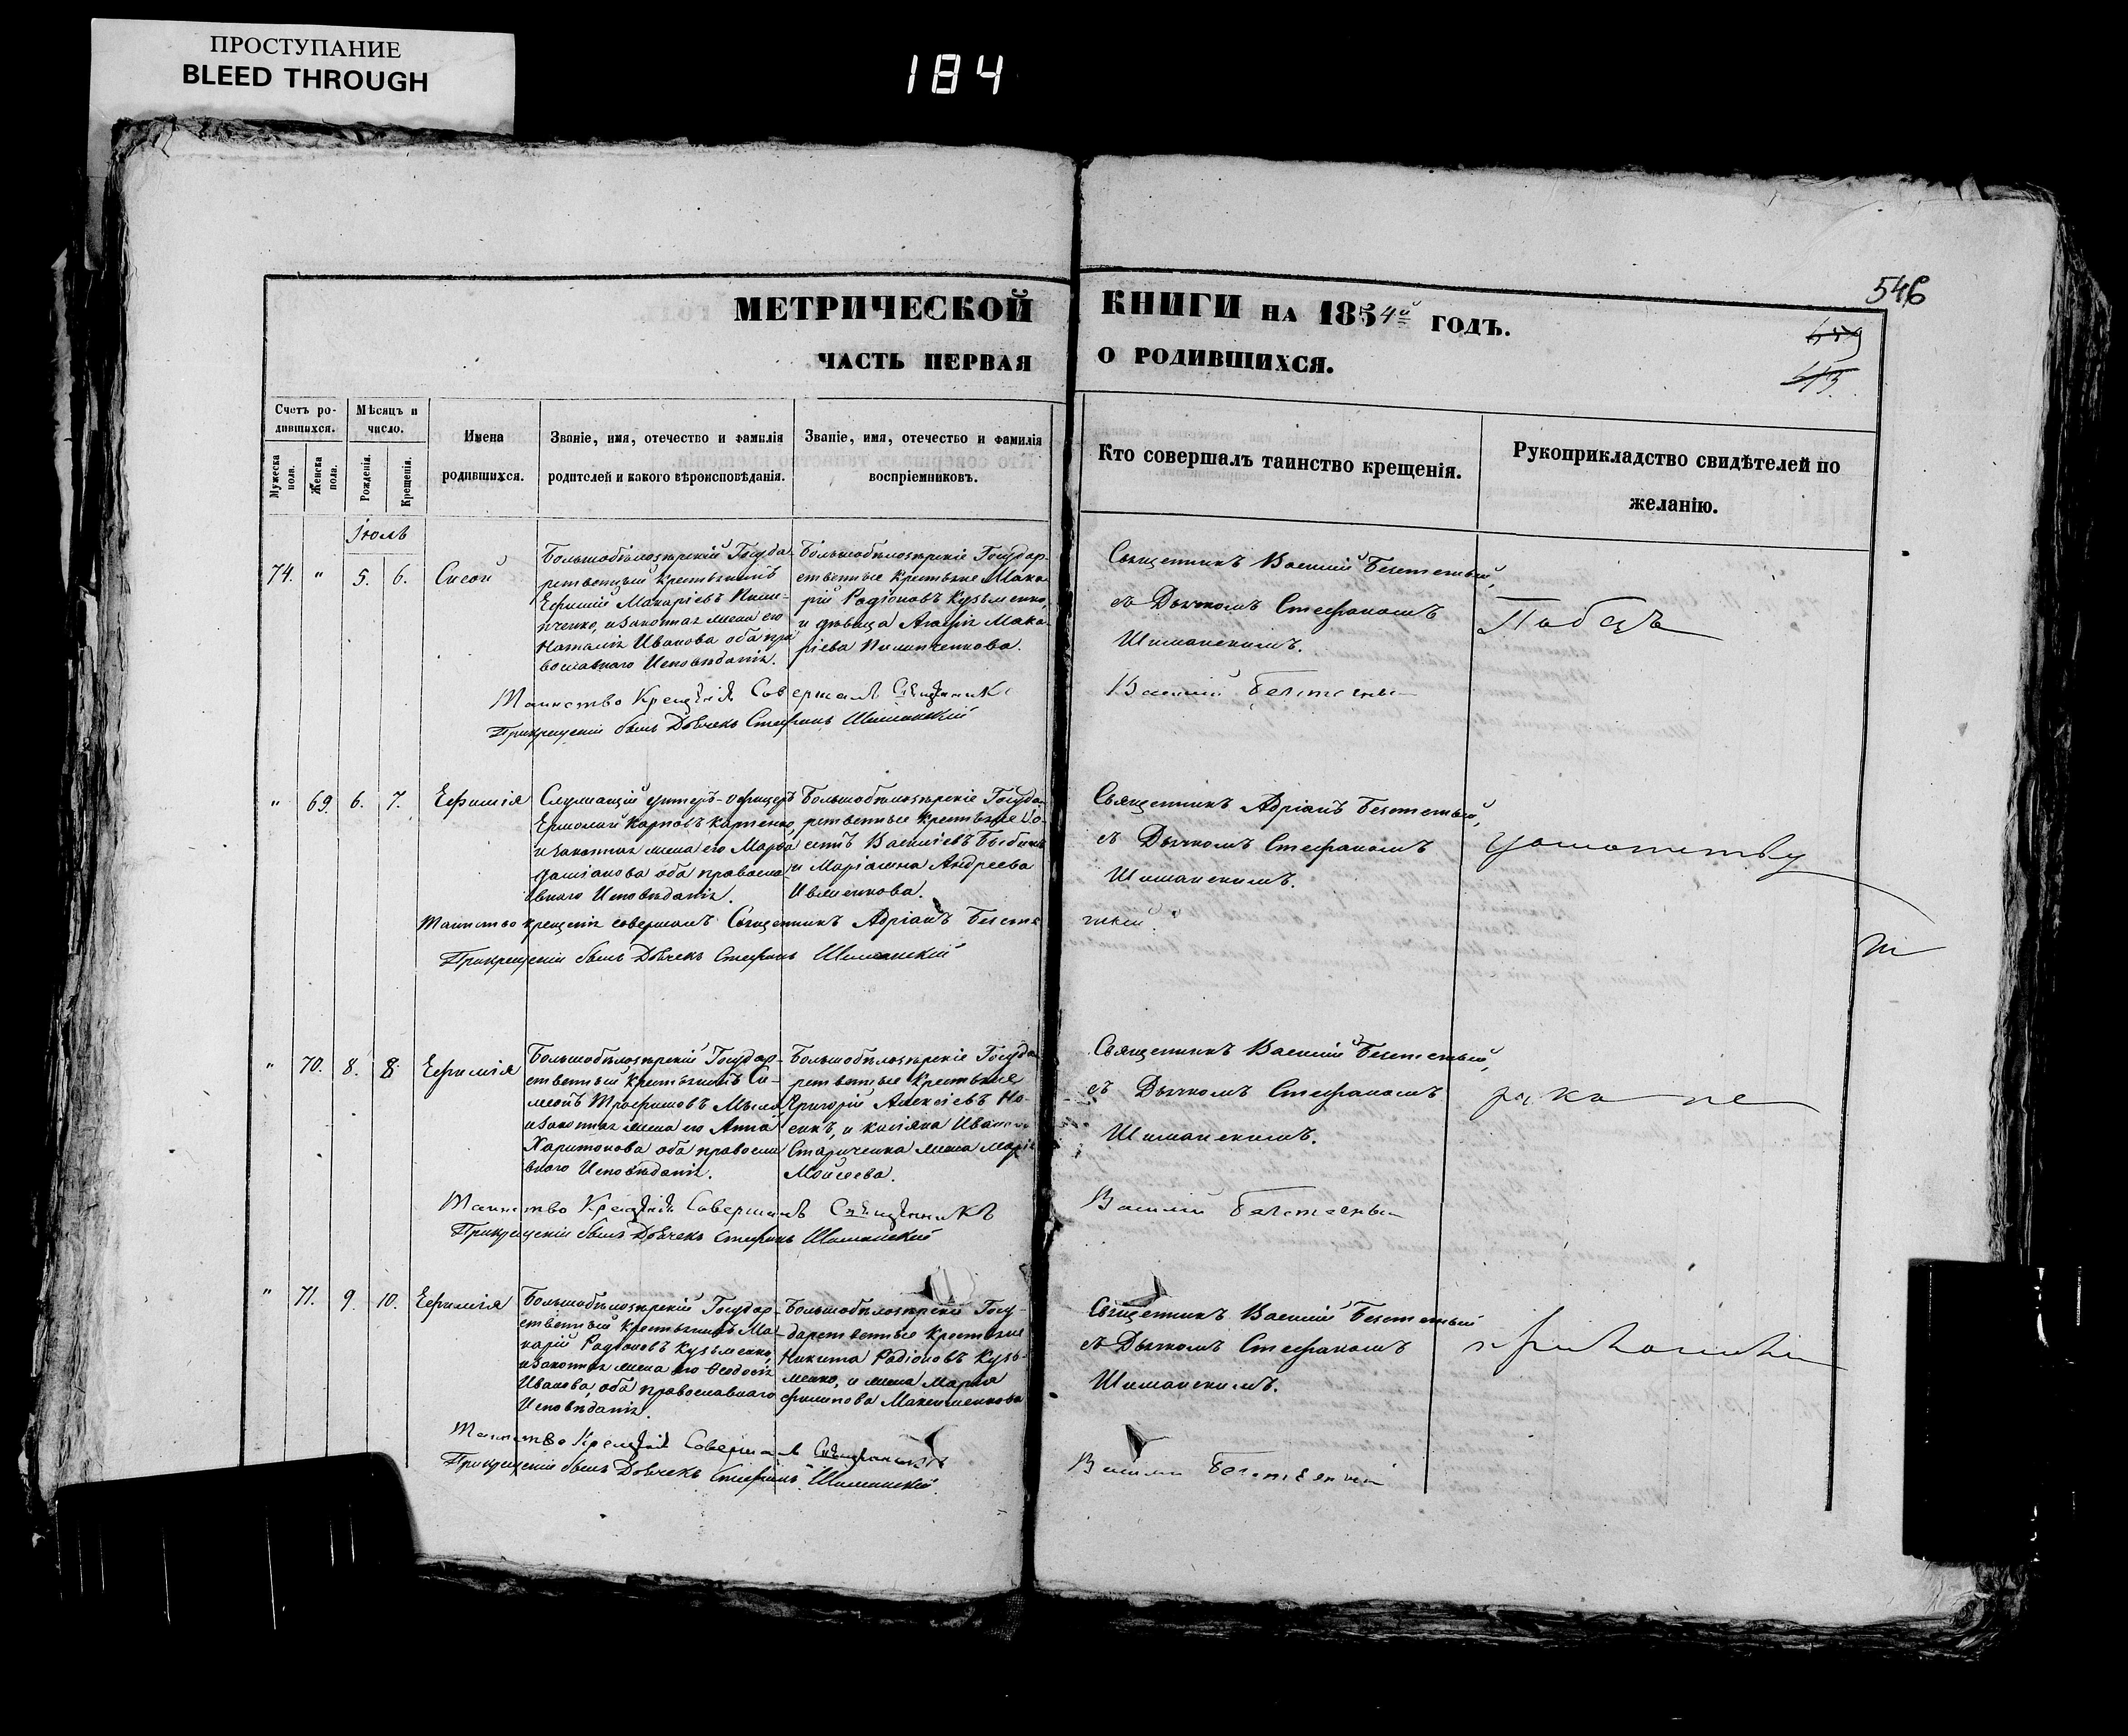 ПРОСТУПАНИЕ
BLEED THROUGH
184
546
МЕТРИЧЕСКОЙ КНИГИ НА 1854й ГОДЪ.
ЧАСТЬ ПЕРВАЯ О РОДИВШИХСЯ.
Счетъ ро-
дившихся.
Мужеска пола.
Женска пола.
Мѣсяцъ и
число.
Рожденія.
Крещенія.
Имена
родившихся.
Званіе, имя, отечество и фамилія
родителей и какого вѣроисповѣданія.
Званіе, имя, отечество и фамилія
воспріемниковъ.
Кто совершалъ таинство крещенія.
Рукоприкладство свидѣтелей по
желанію.
Іюль
74. " 5. 6. Сисой
Большобѣлозѣрскій Госуда-
рственный Крестьянинъ
Ефимій Макаріевъ Пили-
пченко, и Законная жена его
Наталія Иванова оба пра
вославнаго Исповѣданія.
Большобѣлозѣрскіе Государ-
ственные Крестьяне Мака-
рій Радіоновъ Кузьменко,
и дѣвица Агафія Мака-
ріева Пилипченкова.
Священникъ Василій Безстенный,
съ Дьячкомъ Стефаномъ
Шиманскимъ.
Таинство Крещенія Совершалъ Священникъ
Василій
При крещеніи былъ Дьячекъ Стефанъ Шиманскій
" 69. 6. 7. Ефимія
Служащій унтеръ-офицеръ
Ермолай Карповъ Карпенко,
и Законная жена его Марфа
Даміанова оба правосла
внаго Исповѣданія.
Большобѣлозѣрскіе Госуда-
рственные Крестьяне
Василіевъ
и Маріамна Андреева
Ивженкова.
Священникъ Адріанъ Безстенный,
съ Дьячкомъ Стефаномъ
Шиманскимъ.
Таинство крещенія совершалъ Священникъ Адріанъ
При крещеніи былъ Дьячекъ Стефанъ Шиманскій
" 70. 8. 8. Ефимія
Большобѣлозѣрскій Государ-
ственный Крестьянинъ Си-
меонъ Трофимовъ
и Законная жена его Анна
Харитонова оба правосла
внаго Исповѣданія.
Большобѣлозѣрскіе Госуда
рственные Крестьяне
Григорій Алексіевъ Но-
сикъ, и Касіяна Иванова
Стариченка жена Марія
Моисеева.
Священникъ Василій Безстенный,
съ Дьячкомъ Стефаномъ
Шиманскимъ.
Таинство Крещенія Совершалъ Священникъ
Василій
При крещеніи былъ Дьячекъ Стефанъ Шиманскій
" 71. 9. 10. Ефимія
Большобѣлозѣрскій Государ-
ственный Крестьянинъ Ма-
карій Радіоновъ Кузьменко,
и Законная жена его Ѳеодосія
Иванова, оба православнаго
Исповѣданія.
Большобѣлозѣрскіе Госу-
дарственные Крестьяне
Никита Радіоновъ Кузь-
менко, и жена Марія
Филипова Максименкова
Священникъ Василій Безстенный
съ Дьячкомъ Стефаномъ
Шиманскимъ.
Таинство Крещенія Совершалъ Священникъ
Василій
При крещеніи былъ Дьячекъ Стефанъ Шиманскій.